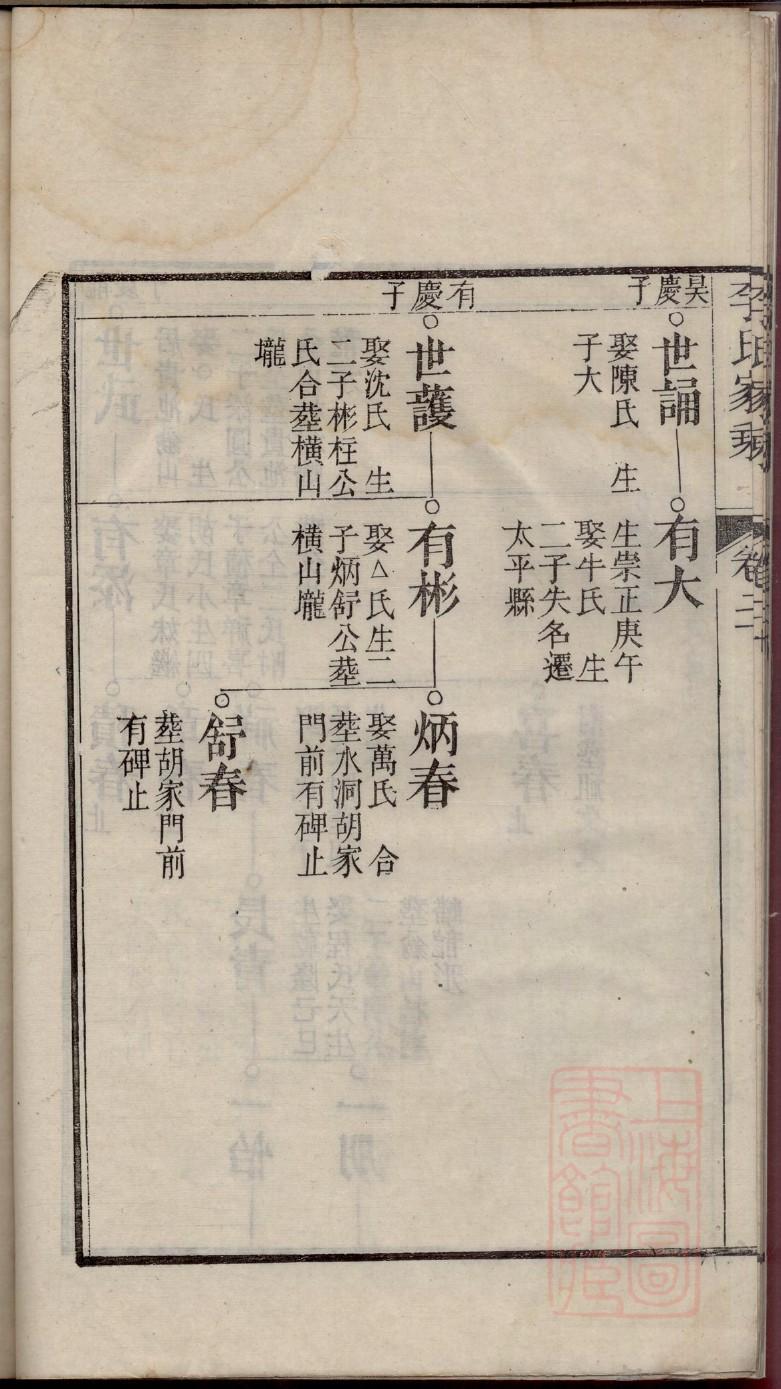 李氏家乘
卷三
昊慶子
世誦
娶陳氏　生
子大
有大
生崇正庚午
娶牛氏　生
二子失名遷
太平縣
有慶子
世護
娶沈氏　生
二子彬柱公
氏合塟橫山
壠
有彬
娶△氏生二
子炳舒公塟
橫山壠
炳春
娶萬氏　合
塟水洞胡家
門前有碑止
舒春
塟胡家門前
有碑止
上海圖
書館藏